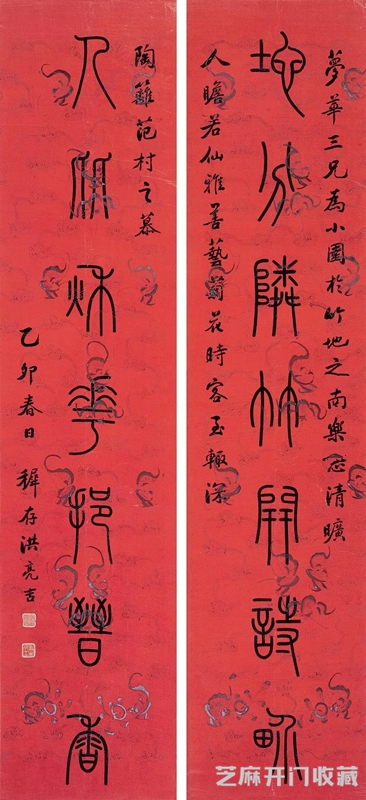 夢華三兄為小園於竹地之南樂志清曠
地分隣竹開詩
人瞻若仙雅善藝菊花時客至輒深
陶籬范村之慕
人佩秌華挹晉香
乙卯春日 穉存洪亮吉
芝麻开门收藏